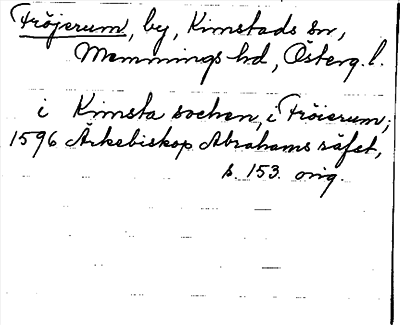 Fröjerum, by, Kimstads sn,
Memmings hd, Österg. l.
i Kimsta sochen, i Fröierum;
1596 Ärkebiskop Abrahams räfst,
s. 153. orig.